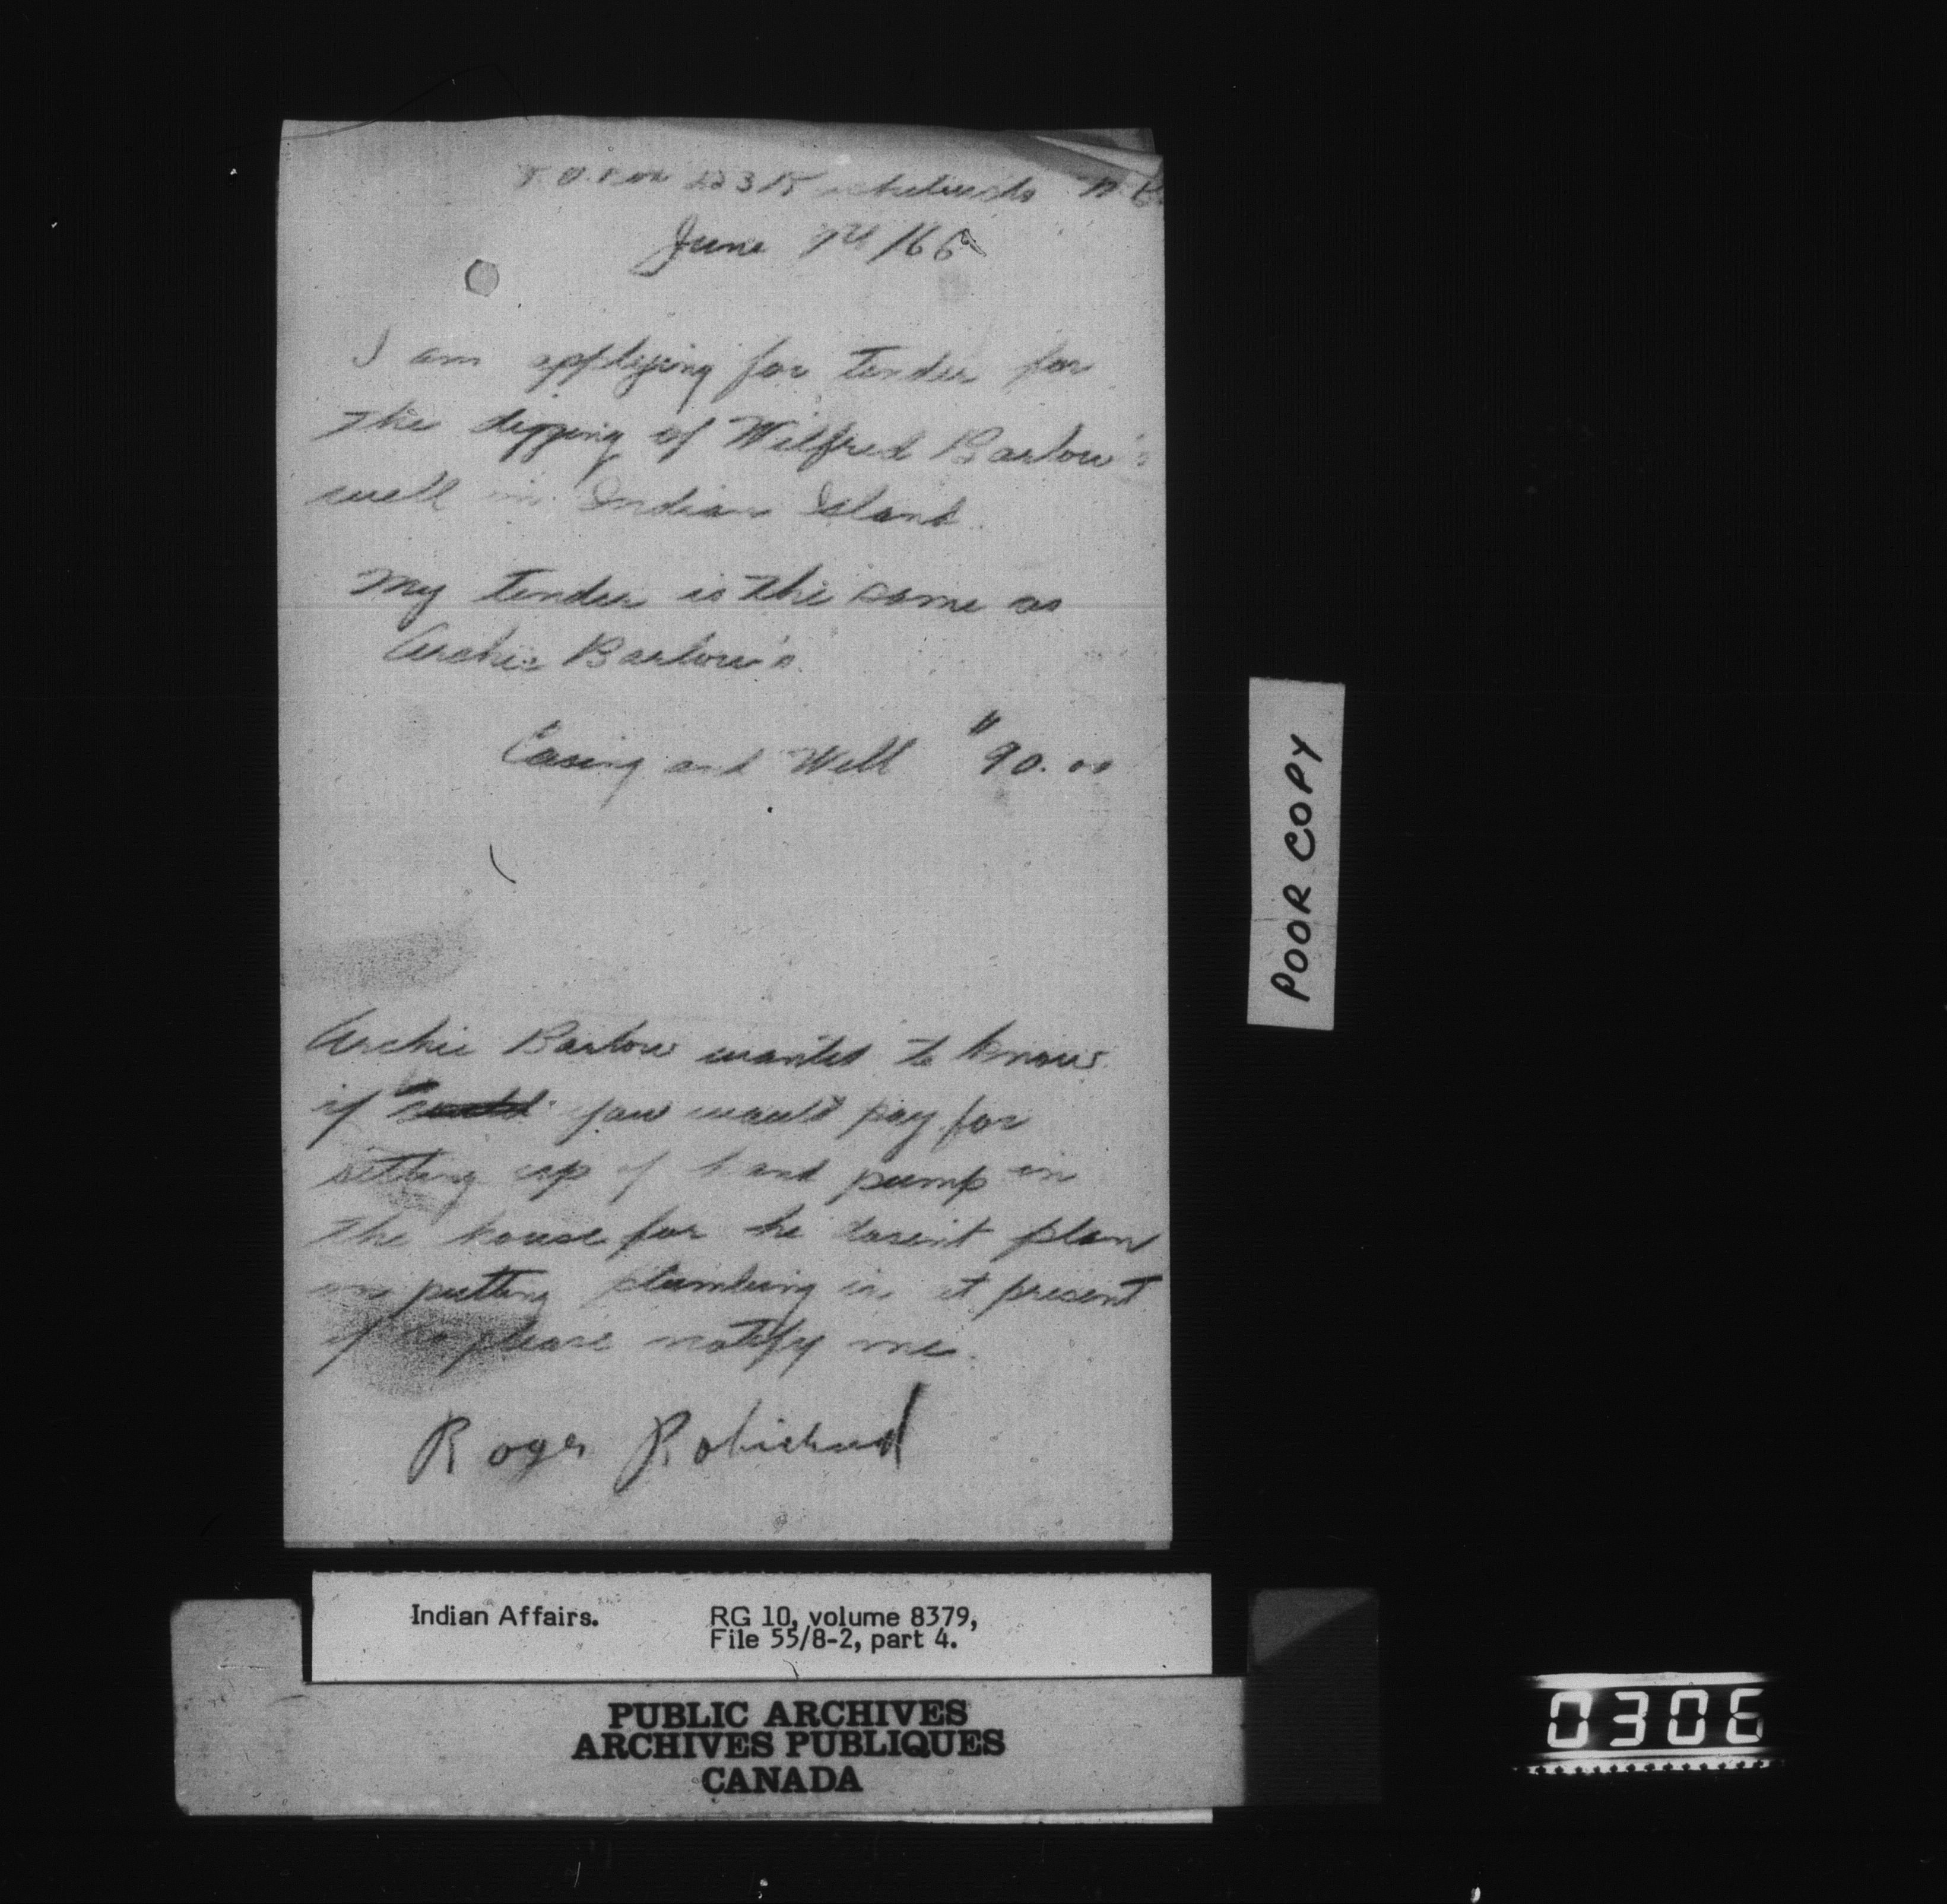 P.O. Box 223 Richibucto N.B.
June 14/66
I am applying for tender for
the digging of Wilfred Barlow's
well in Indian Island.
My tender is the same as
Archie Barlow's.
Casing and Well "90.00
Archie Barlow wanted to know
if you would pay for
setting up of hand pump in
the house for he dosen't plan
on putting plumbing in at present
if so please notify me.
Roger Robichaud
POOR COPY
Indian Affairs. RG 10, volume 8379,
File 55/8-2, part 4.
PUBLIC ARCHIVES
ARCHIVES PUBLIQUES
CANADA
0306